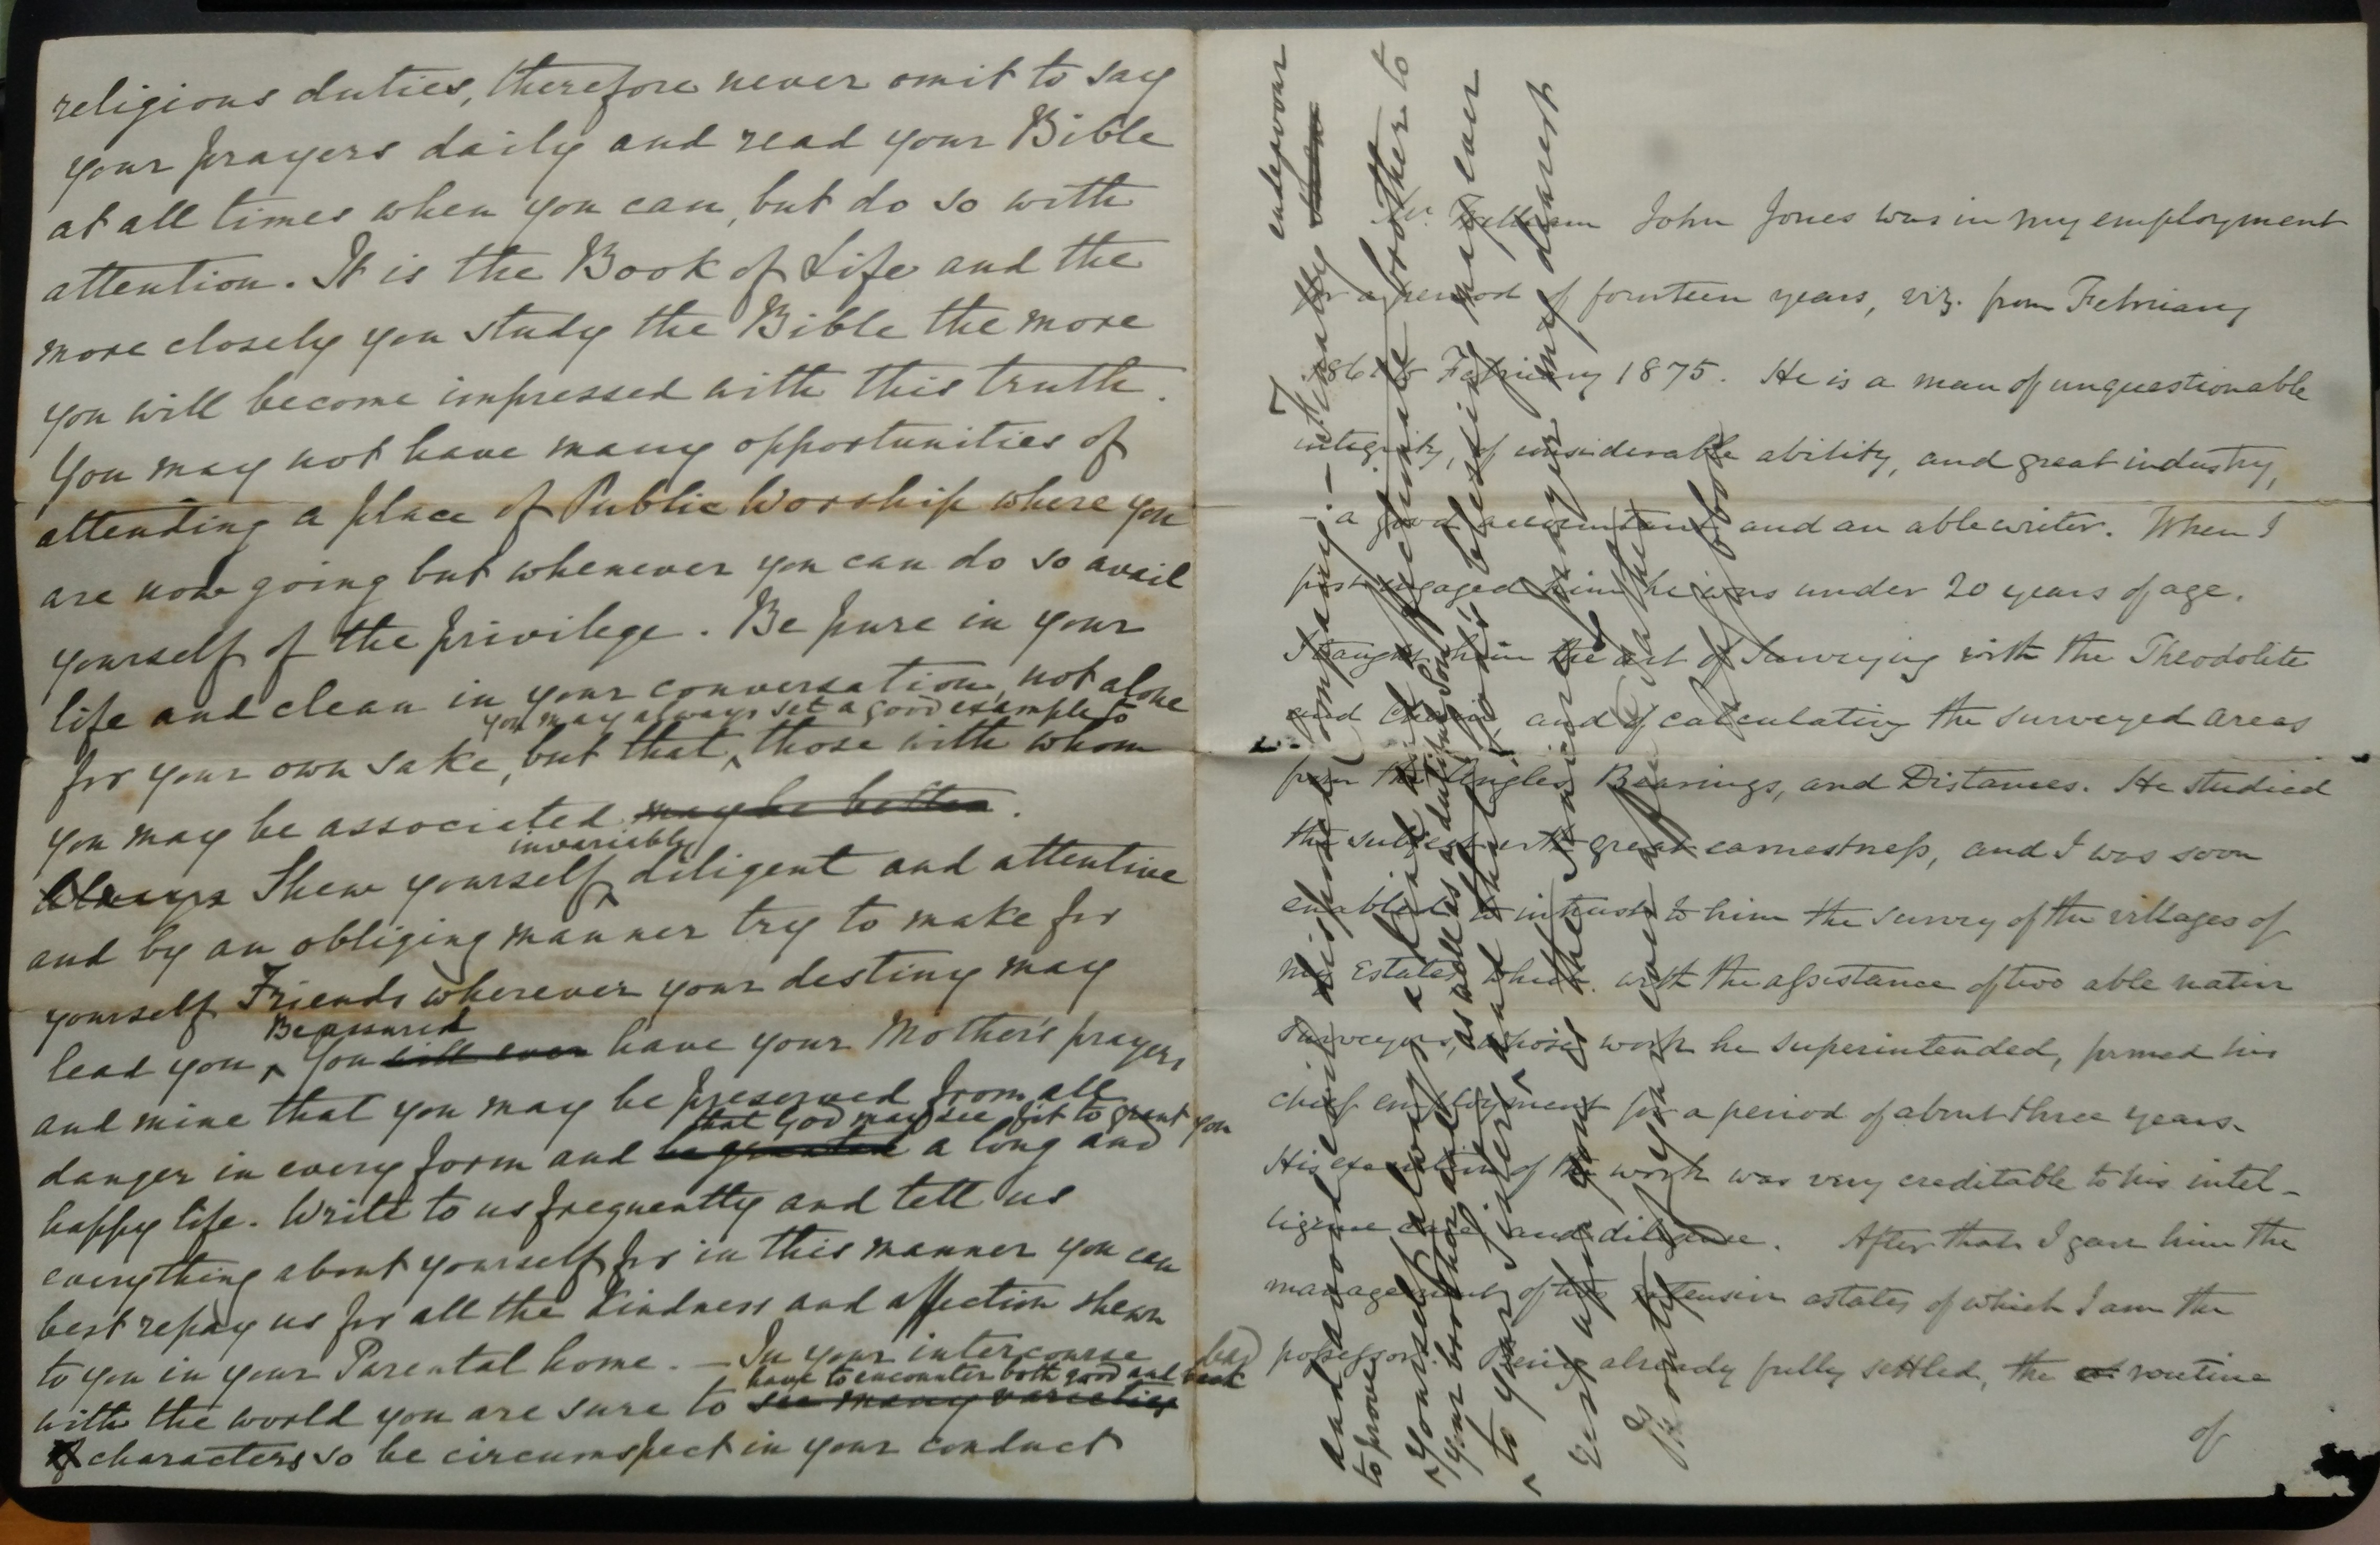 religious duties, therefore never omit to say
your prayers daily and read your Bible
at all times when you can, but do so with
attention. It is the Book of Life and the
more closely you study the Bible the more
you will become impressed with this truth.
You may not have many opportunities of
attending a place of Public Worship where you
are now going but whenever you can do so avail
yourself of the privilege. Be pure in your
life and clean in your conversation, not alone
you may always set a good example to
for your own sake, but that ‸ those with whom
you may be associated may be better.
invariably
Always Shew yourself ‸ diligent and attentive
and by an obliging manner try to make for
yourself Friends wherever your destiny may
Be assured
lead you ‸ You will ever have your Mother's prayers
and mine that you may be preserved from all
that God may see fit to grant you
danger in every form and be granted a long and
happy life. Write to us frequently and tell us
everything about yourself for in this manner you can
best repay us for all the kindness and affection shewn
to you in your Parental home. — In your intercourse
have to encounter both good and bad
with the world you are sure to see many varieties
of characters so be circumspect in your conduct
and avoid evil disposed company. — Finally
endeavour
to prove
yourself always a kind and affectionate brother to
your brother and as well as a dutiful Son
to your Sisters ‸ and that God's blessing may ever
rest upon you is the sincere prayer my dearest
Monty of your ever affec. Father
My dear boy
Mr. William John Jones was in my employment
for a period of fourteen years, viz. from February
1861 to February 1875. He is a man of unquestionable
integrity, of considerable ability, and great industry,
— a good accountant and an able writer. When I
first engaged him he was under 20 years of age.
I taught him the art of Surveying with the Theodolite
and Chain, and of calculating the surveyed areas
from the Angles, Bearings, and Distances. He studied
the subject with great earnestness, and I was soon
enabled to intrust to him the survey of the villages of
my Estates, which, with the assistance of two able native
Surveyors, whose work he superintended, formed his
chief employment for a period of about three years.
His execution of the work was very creditable to his intel-
ligence care and diligence. After that I gave him the
management of the extensive estates of which I am the
possessor. Being already fully settled, the routine
of